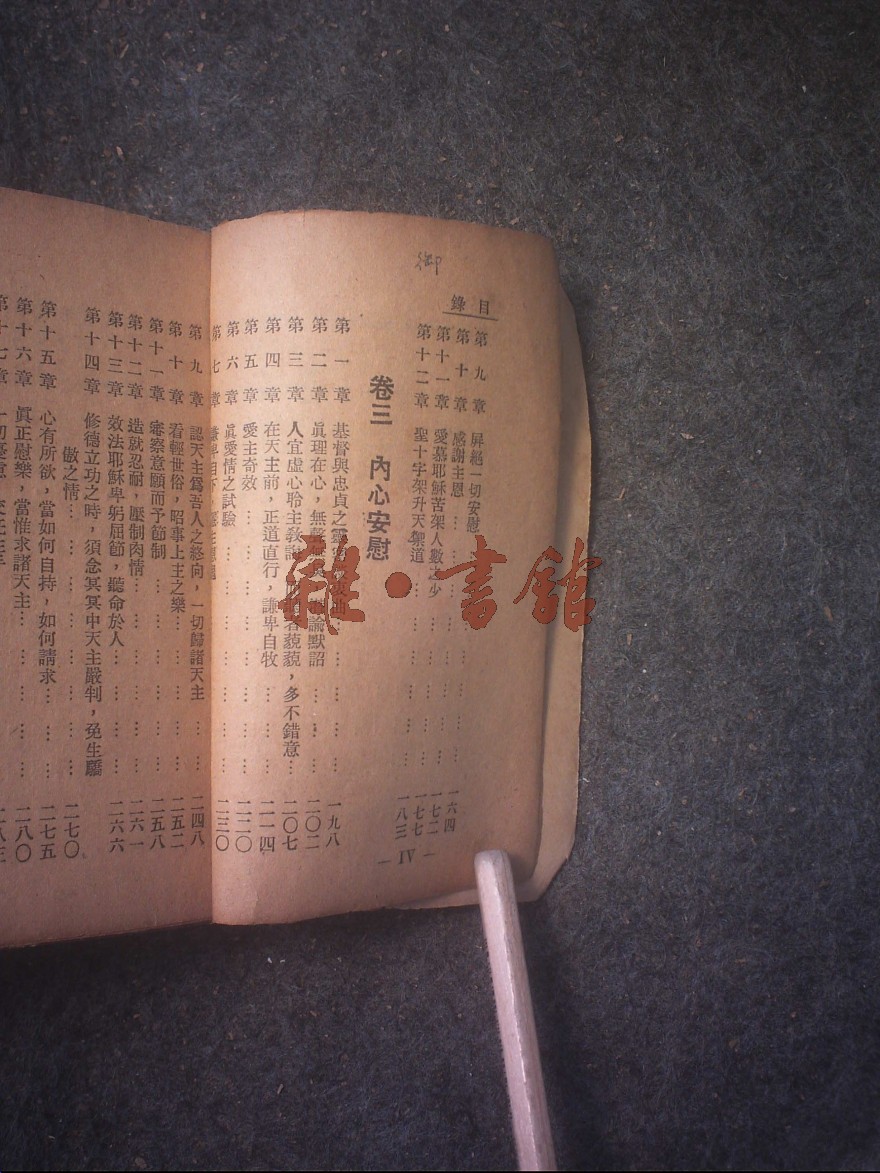 御
目錄
第九章 屏絕一切安慰
第十章 感謝主恩 一六四
第十一章 愛慕耶穌苦架人數之少 一七二
第十二章 聖十字架升天禦道 一七七
一八三
卷三 內心安慰
第一章 基督與忠貞之靈 一九八
第二章 眞理在心,無聲 論默詔 二〇二
第三章 人宜虛心聆主教 藐藐,多不錯意 二〇七
第四章 在天主前,正道直行,謙卑自牧 二一四
第五章 愛主奇效 二二〇
第六章 眞愛情之試驗 二三〇
第七章
第九章 認天主爲吾人之終向,一切歸諸天主 二四八
第十章 看輕世俗,昭事上主之樂 二五二
第十一章 審察意願而予節制 二五八
第十二章 造就忍耐,壓制肉情 二六一
第十三章 效法耶穌卑躬屈節,聽命於人 二六六
第十四章 修德立功之時,須念冥冥中天主嚴判,免生驕
傲之情 二七〇
第十五章 心有所欲,當如何自持,如何請求 二七五
第十六章 眞正慰樂,當惟求諸天主 二八〇
第十七章
— IV —
雜·書館